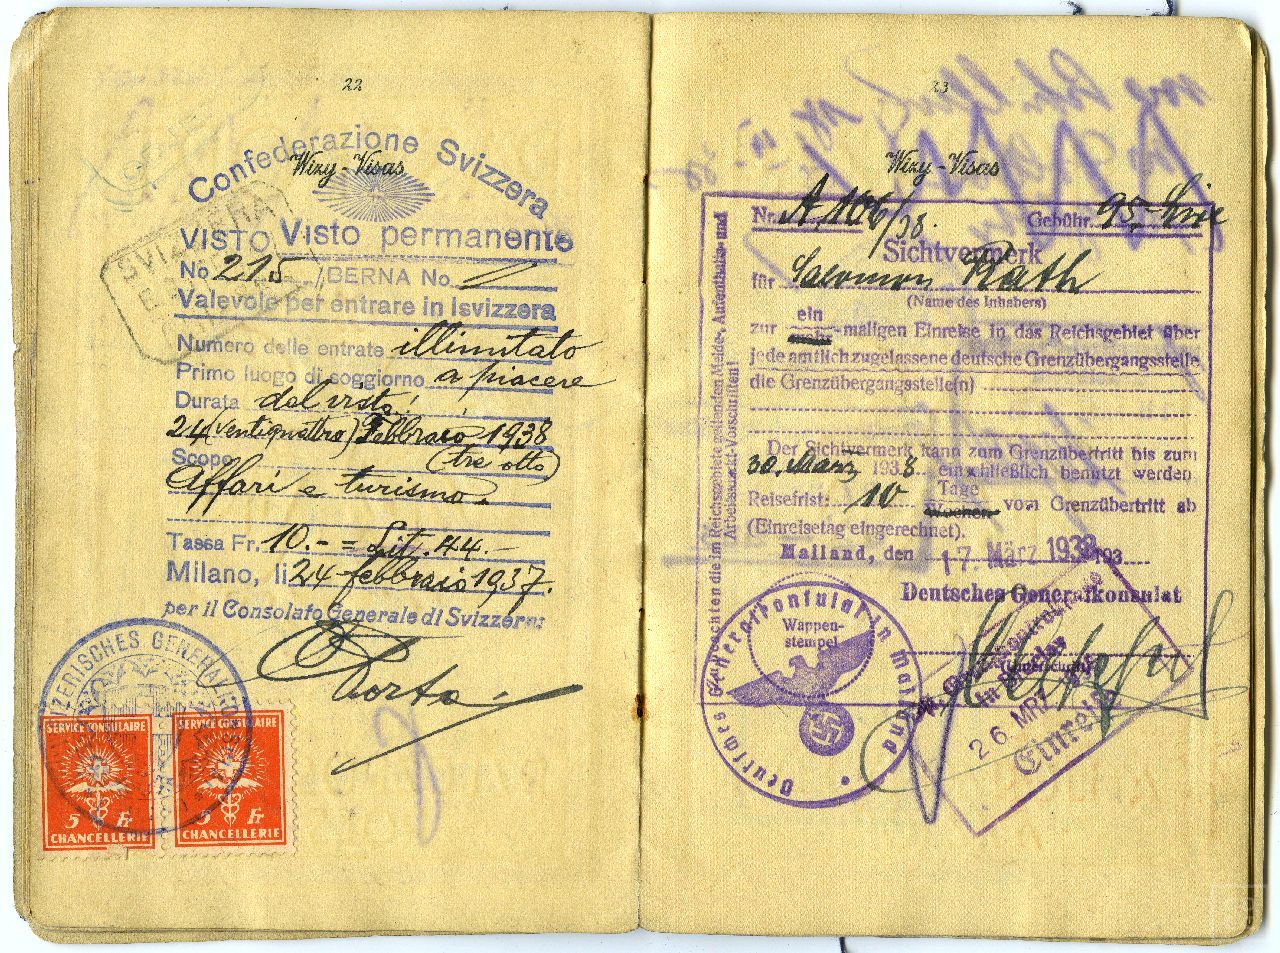 22
Confederazione Svizzera
Wizy-Visas
VISTO Visto permanente
No 215 / BERNA No.
Valevole per entrare in Isvizzera
Numero delle entrate illimitato
Primo luogo di soggiorno a piacere
Durata del visto:
24 (ventiquattro) Febbraio 1938
Scopo (tre otto)
Affari e turismo
Tassa Fr. 10.- = Lit. 44.-
Milano, li 24 febbraio 1937.
per il Consolato Generale di Svizzera:
SVIZZERA
SERVICE CONSULAIRE
5 Fr
CHANCELLERIE
SERVICE CONSULAIRE
5 Fr
CHANCELLERIE
23
Wizy-Visas
Nr. A 106/38. Gebühr. 95.- Lire
Sichtvermerk
für Salomon Rath
(Name des Inhabers)
ein
zur mehr-maligen Einreise in das Reichsgebiet über
jede amtlich zugelassene deutsche Grenzübergangsstelle
die Grenzübergangsstelle(n)
Der Sichtvermerk kann zum Grenzübertritt bis zum
30. März 1938. einschließlich benutzt werden
Tage
Reisefrist: 10 Wochen vom Grenzübertritt ab
(Einreisetag eingerechnet).
Mailand, den 17. März 1938 193
Deutsches Generalkonsulat
(Unterschrift)
Wappen-
stempel
Deutsches Generalkonsulat in Mailand
26. MRZ. 1938
Einreise